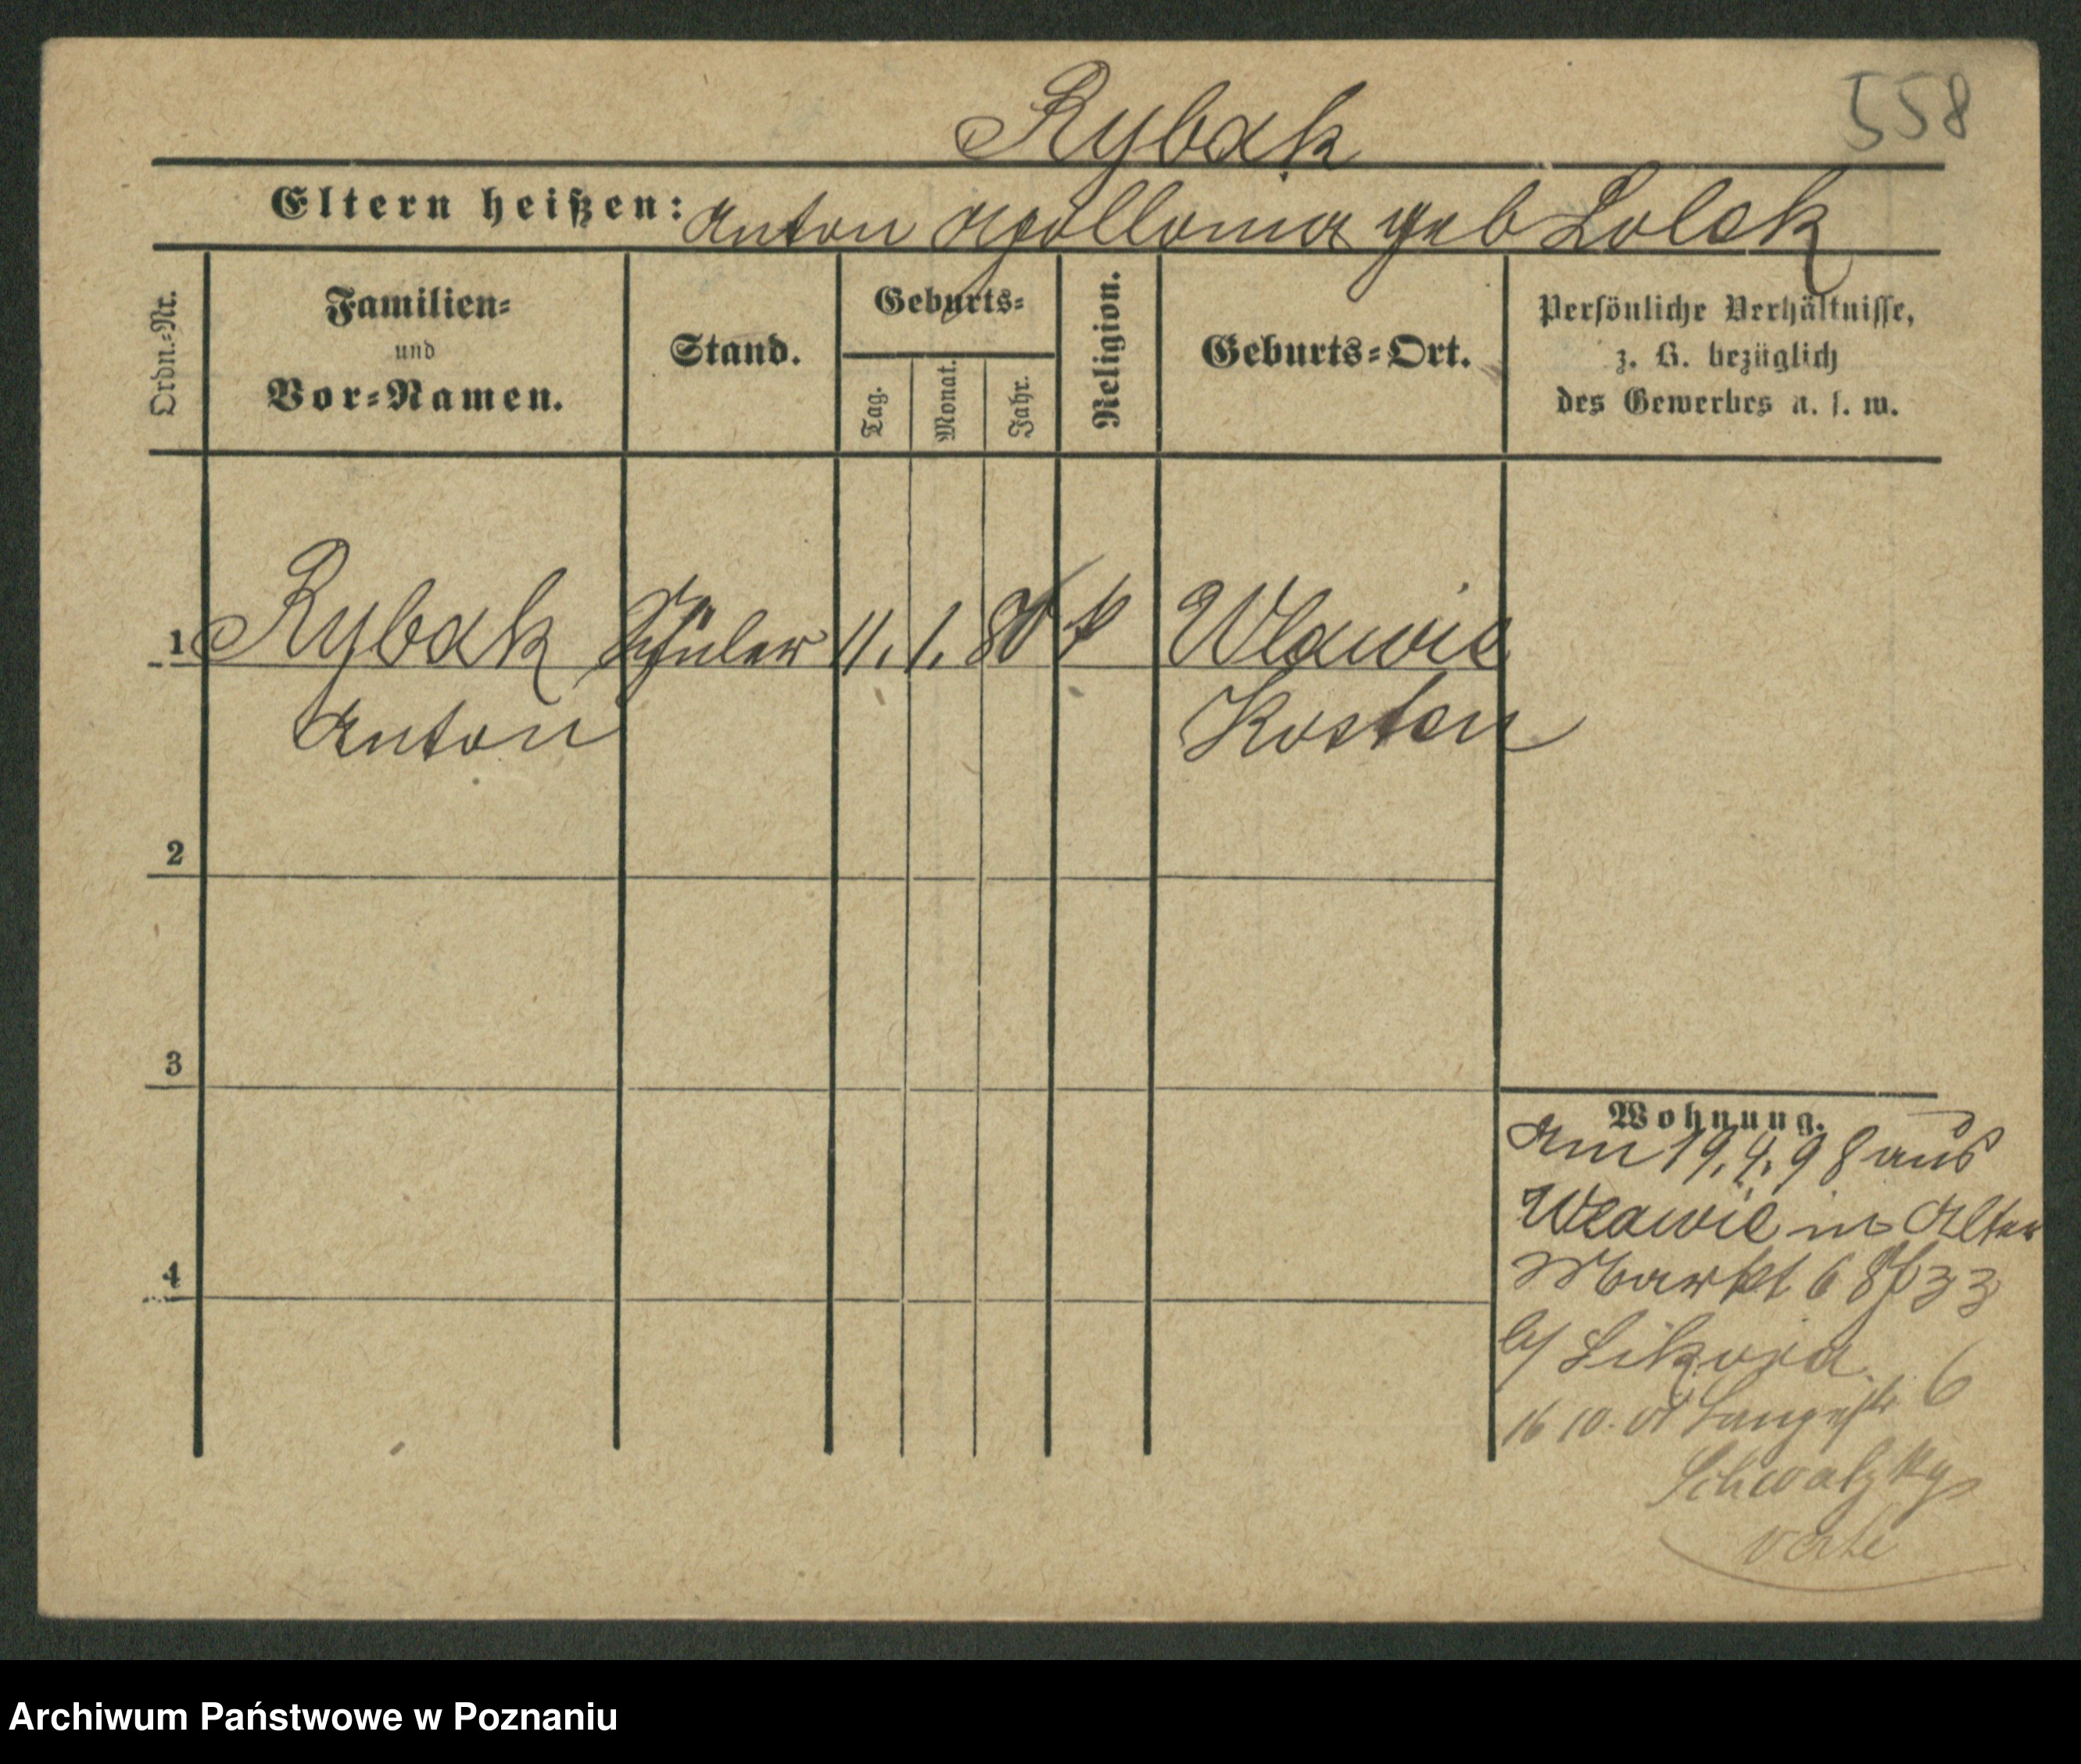 558
Rybak
Eltern heißen: Anton Apollonia geb Lolek
Ordn.-Nr.
Familien-
und
Vor-Namen.
Stand.
Geburts-
Tag.
Monat.
Jahr.
Religion.
Geburts-Ort.
Persönliche Verhältnisse,
z. B. bezüglich
des Gewerbes u. s. w.
1 Rybak Schüler 11. 1. 80 k Wlawie
Anton Kosten
2
3
4
Wohnung.
Am 19.4.98 aus
Wlawie in Alter
Markt 68/33
b/
16 10. 01 Langestr 6
verte
Archiwum Państwowe w Poznaniu